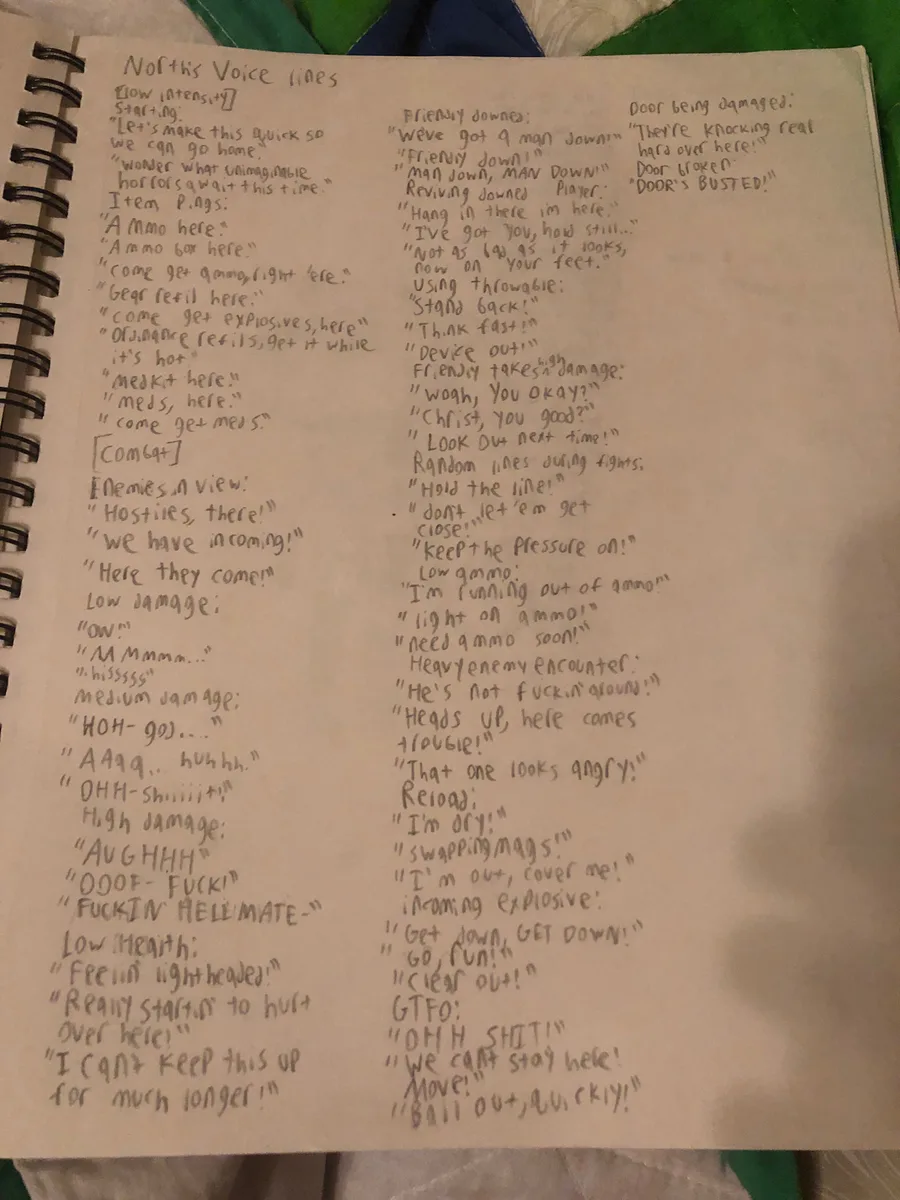 North's Voice lines
[low intensity]
Starting:
"Let's make this quick so
we can go home."
"wonder what unimaginable
horrors await this time."
Item Pings:
"Ammo here."
"Ammo box here."
"come get ammo, right 'ere."
"Gear refil here."
"come get explosives, here"
"Ordinance refils, get it while
it's hot"
"medkit here."
"meds, here."
"come get meds."
[Combat]
Enemies in view:
"Hostiles, there!"
"we have incoming!"
"Here they come!"
Low damage:
"ow!"
"MMmmm..."
"hisssss"
medium damage:
"HOH- god...."
"AAaa.. huhhh."
"OHH-shiiiit!"
High damage:
"AUGHHH"
"OOOF- FUCK!"
"FUCKIN HELL MATE-"
Low Health:
"Feelin' lightheaded!"
"Really startin' to hurt
over here!"
"I can't keep this up
for much longer!"
Friendly downed:
"We've got a man down!"
"Friendly down!"
"man down, MAN DOWN!"
Reviving downed Player:
"Hang in there im here."
"I've got you, hold still..."
"Not as bad as it looks,
now on your feet."
using throwable:
"Stand back!"
"Think fast!"
"Device out!"
Friendly takes high damage:
"woah, you okay?"
"Christ, you good?"
"Look out next time!"
Random lines during fights:
"Hold the line!"
"don't let 'em get
close!"
"keep the pressure on!"
Low ammo:
"I'm running out of ammo!"
"light on ammo!"
"need ammo soon!"
Heavy enemy encounter:
"He's not fuckin' around!"
"Heads up, here comes
trouble!"
"That one looks angry!"
Reload:
"I'm dry!"
"swapping mags!"
"I'm out, cover me!"
incoming explosive:
"Get down, GET DOWN!"
"GO, run!"
"Clear out!"
GTFO:
"OHH SHIT!"
"we can't stay here!
Move!"
"Bail out, quickly!"
Door being damaged:
"They're knocking real
hard over here!"
Door broken:
"DOOR'S BUSTED!"